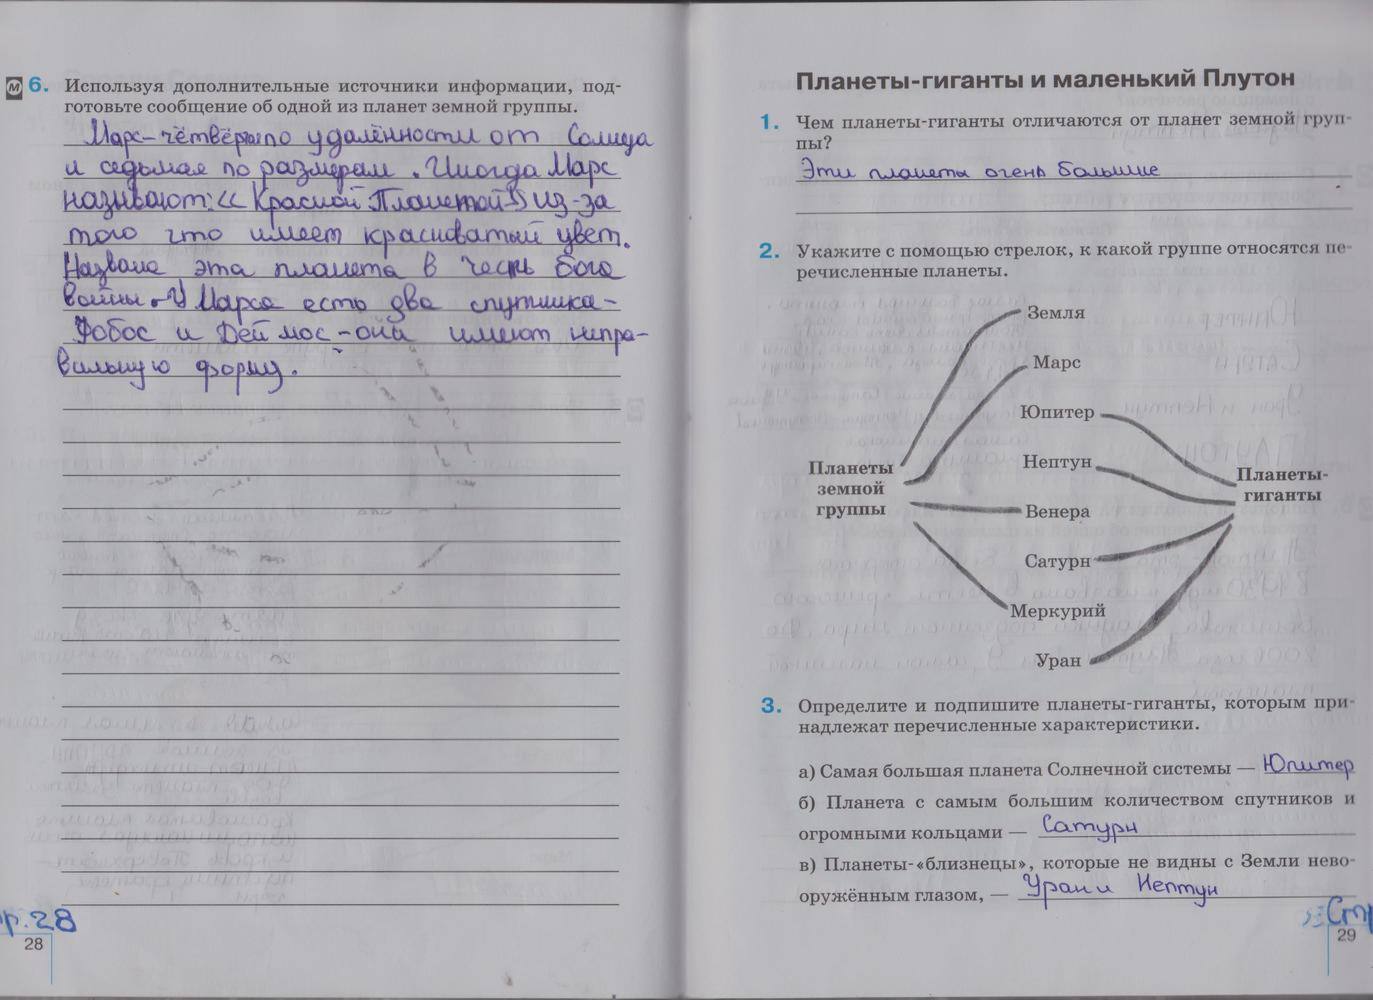 м 6. Используя дополнительные источники информации, под-
готовьте сообщение об одной из планет земной группы.
Марс-чётвёртыпо удалённости от Солнца
и седьмая по размерам. Иногда Марс
называют: «Красной Планетой» из-за
того что имеет красноватый цвет.
Названа эта планета в честь бога
войны. У Марса есть два спутника-
Фобос и Деймос-они имеют непра-
вильную форму.
р.28
28
Планеты-гиганты и маленький Плутон
1. Чем планеты-гиганты отличаются от планет земной груп-
пы?
Эти планеты очень большие
2. Укажите с помощью стрелок, к какой группе относятся пе-
речисленные планеты.
Земля
Марс
Юпитер
Нептун
Венера
Сатурн
Меркурий
Уран
Планеты
земной
группы
Планеты-
гиганты
3. Определите и подпишите планеты-гиганты, которым при-
надлежат перечисленные характеристики.
а) Самая большая планета Солнечной системы — Юпитер
б) Планета с самым большим количеством спутников и
огромными кольцами — Сатурн
в) Планеты-«близнецы», которые не видны с Земли нево-
оружённым глазом, — Уран и Нептун
Стр
29